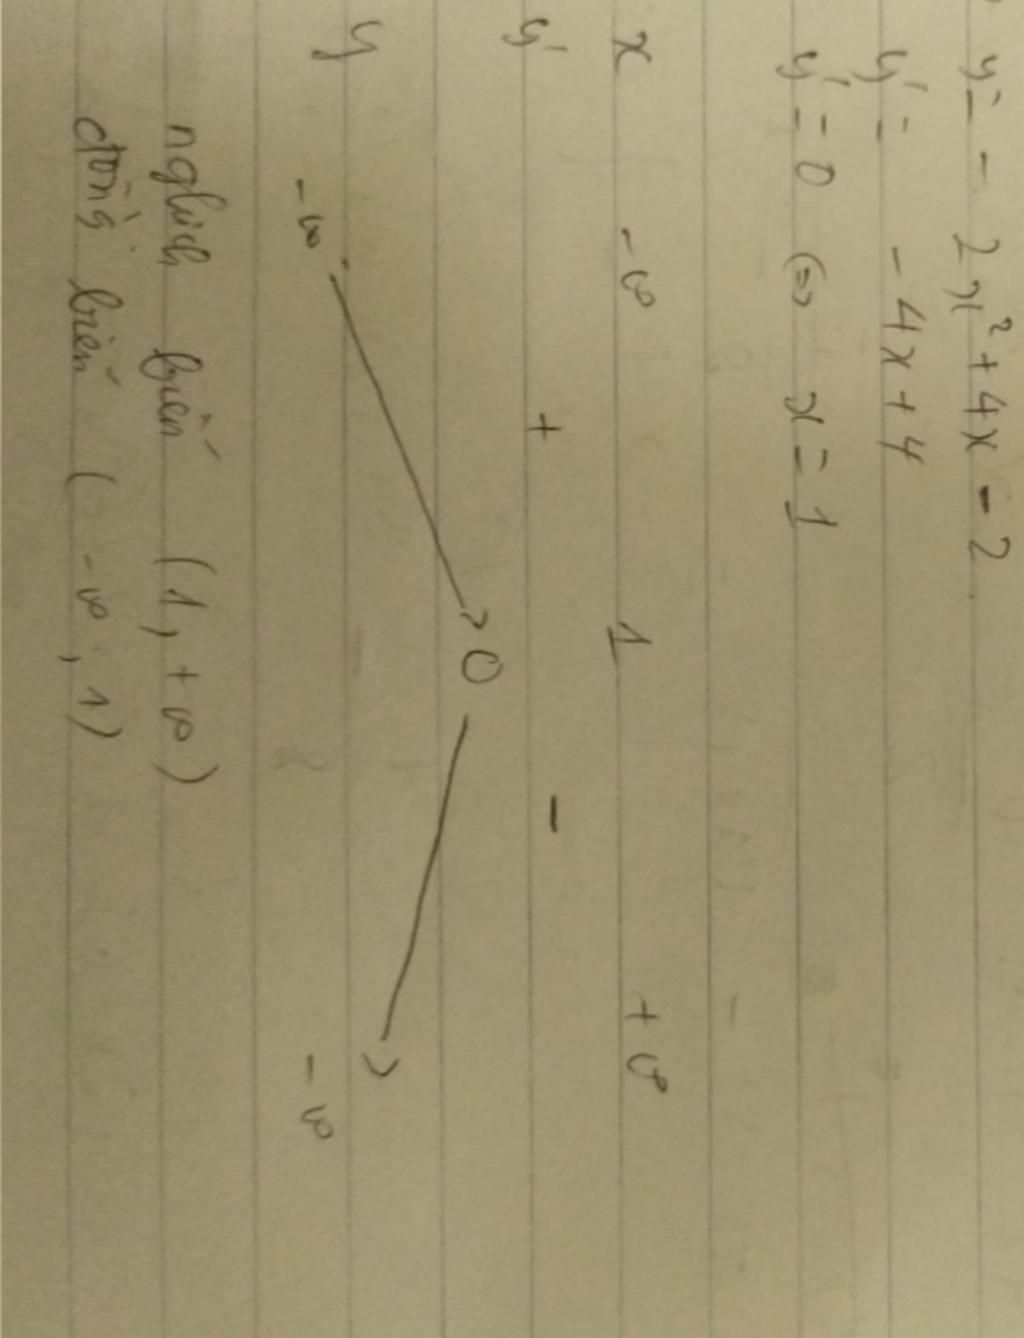 y = - 2x² + 4x - 2
y' = - 4x + 4
y' = 0 ⇔ x = 1
x -∞ 1 +∞
y' + -
0
y -∞ -∞
nghịch biến (1, +∞)
đồng biến (-∞, 1)